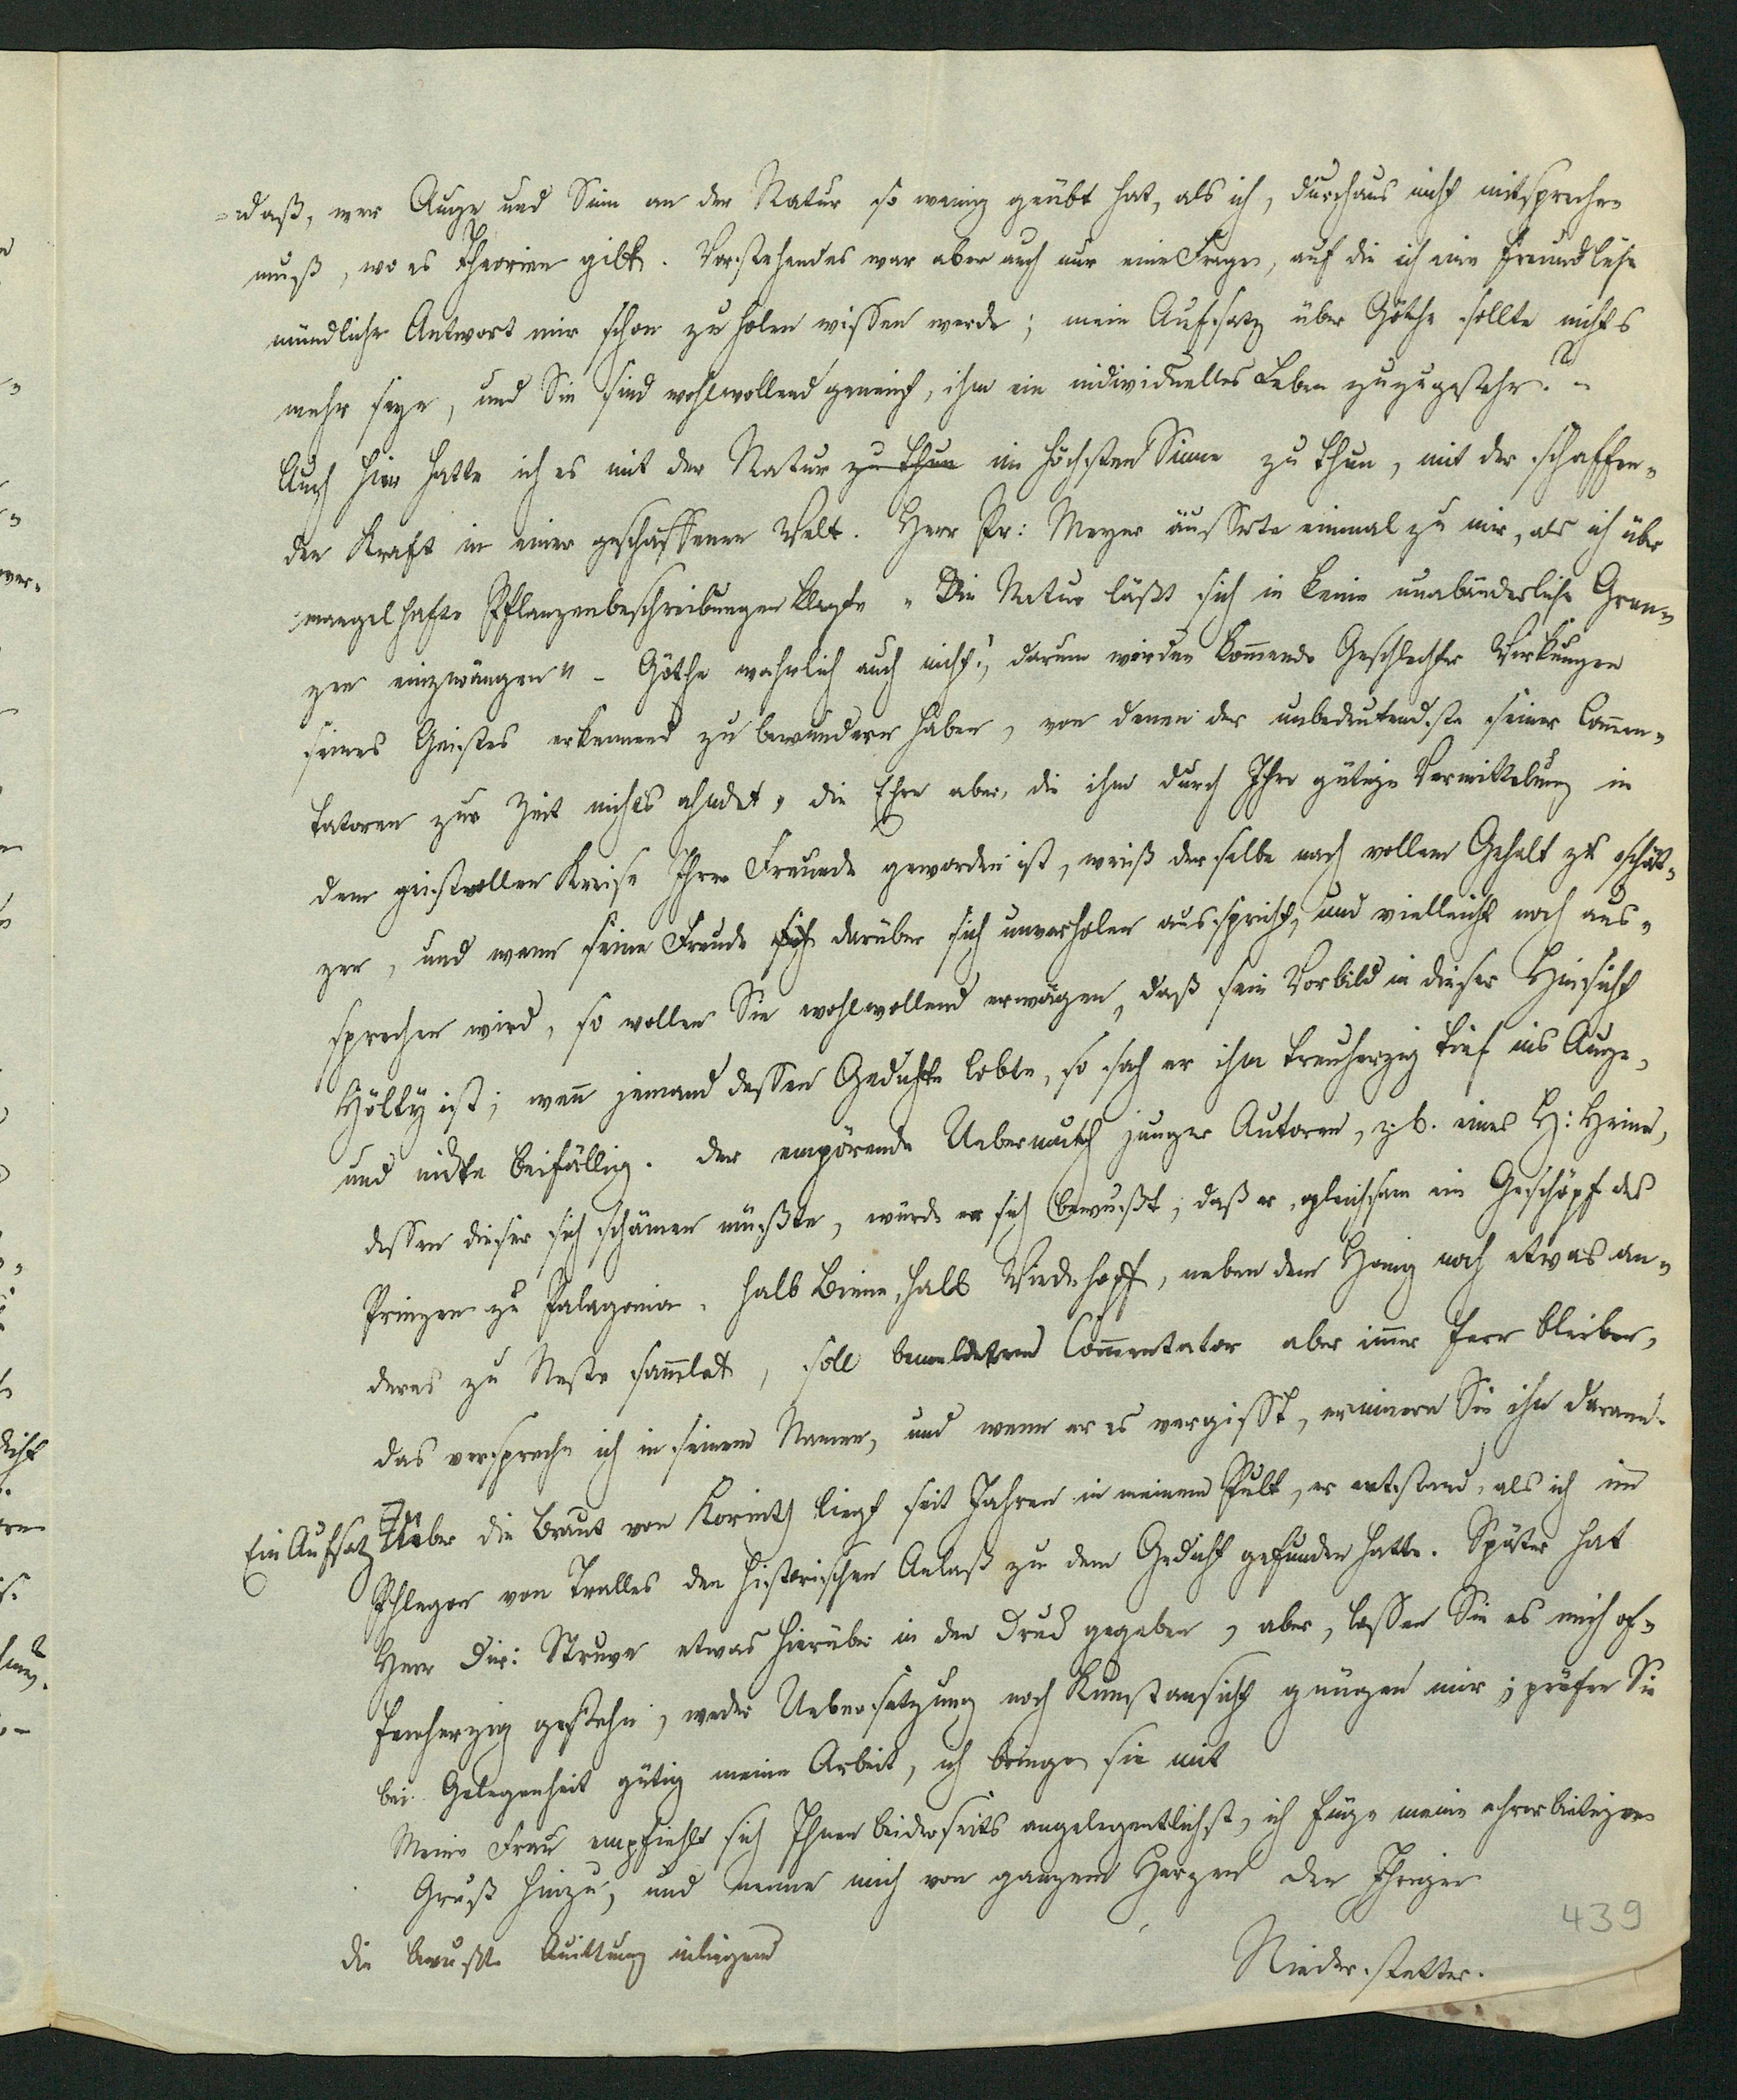 daß, wer Auge und Sinn an der Natur so wenig geübt hat, als ich, durchaus nicht mitsprechen
muß, wo es Theorien gibt. Vorstehendes war aber auch nur eine Frage, auf die ich eine freundliche
mündliche Antwort mir schon zu holen wissen werde; mein Aufsatz über Göthe sollte nichts
mehr seyn, und Sie sind wohlwollend geneigt, ihm ein individuelles Leben zuzugestehn. –
Auch hier hatte ich es mit der Natur zu thun im höchsten Sinne zu thun, mit der schaffen-
den Kraft in einer geschaffenen Welt. Herr Pr: Meyer äusserte einmal zu mir, als ich über
mangelhafte Pflanzenbeschreibungen klagte „Die Natur läßt sich in keine unabänderliche Gren-
zen einzwängen“ – Göthe wahrlich auch nicht!, darum werden kommende Geschlechter Wirkungen
seines Geistes erkennend zu bewundern haben, von denen der unbedeutendste seiner Commen-
tatoren zur Zeit nichts ahndet, die Ehre aber, die ihm durch Ihre gütige Vermittelung in
dem geistvollen Kreise Ihrer Freunde geworden ist, weiß derselbe nach vollem Gehalt zu schät-
zen, und wenn seine Freude sich darüber sich unverholen ausspricht, und vielleicht noch aus-
sprechen wird, so wollen Sie wohlwollend erwägen, daß sein Vorbild in dieser Hinsicht
Hölty ist; wenn jemand dessen Gedichte lobte, so sah er ihm treuherzig tief ins Auge,
und nickte beifällig. Der empörende Uebermuth junger Autoren, z. b. eines H: Heine,
dessen dieser sich schämen müßte, würde er sich bewußt, daß er, gleichsam ein Geschöpf des
Prinzen zu Palagonia, halb Biene, halb Wiedehopf, neben dem Honig noch etwas an-
deres zu Neste sammlet, soll bemeldetem Commentator aber immer fern bleiben,
das verspreche ich in seinem Namen, und wenn er es vergisst, erinnern Sie ihn daran.
Ein Aufsatz Ueber die Braut von Korinth liegt seit Jahren in meinem Pult, er entstand, als ich im
Phlegon von Tralles den historischen Anlaß zu dem Gedicht gefunden hatte. Später hat
Herr Dir: Struve etwas hierüber in den Druck gegeben, aber, lassen Sie es mich of-
fenherzig gestehn, weder Uebersetzung noch Kunstansicht genügen mir; prüfen Sie
bei Gelegenheit gütig meine Arbeit, ich bringe sie mit
Meine Frau empfiehlt sich Ihnen beiderseits angelegentlichst, ich füge meine ehrerbietigen
Gruß hinzu, und nenne mich von ganzem Herzen den Ihrigen
439
die bewußte Quittung inliegend
Niederstetter.